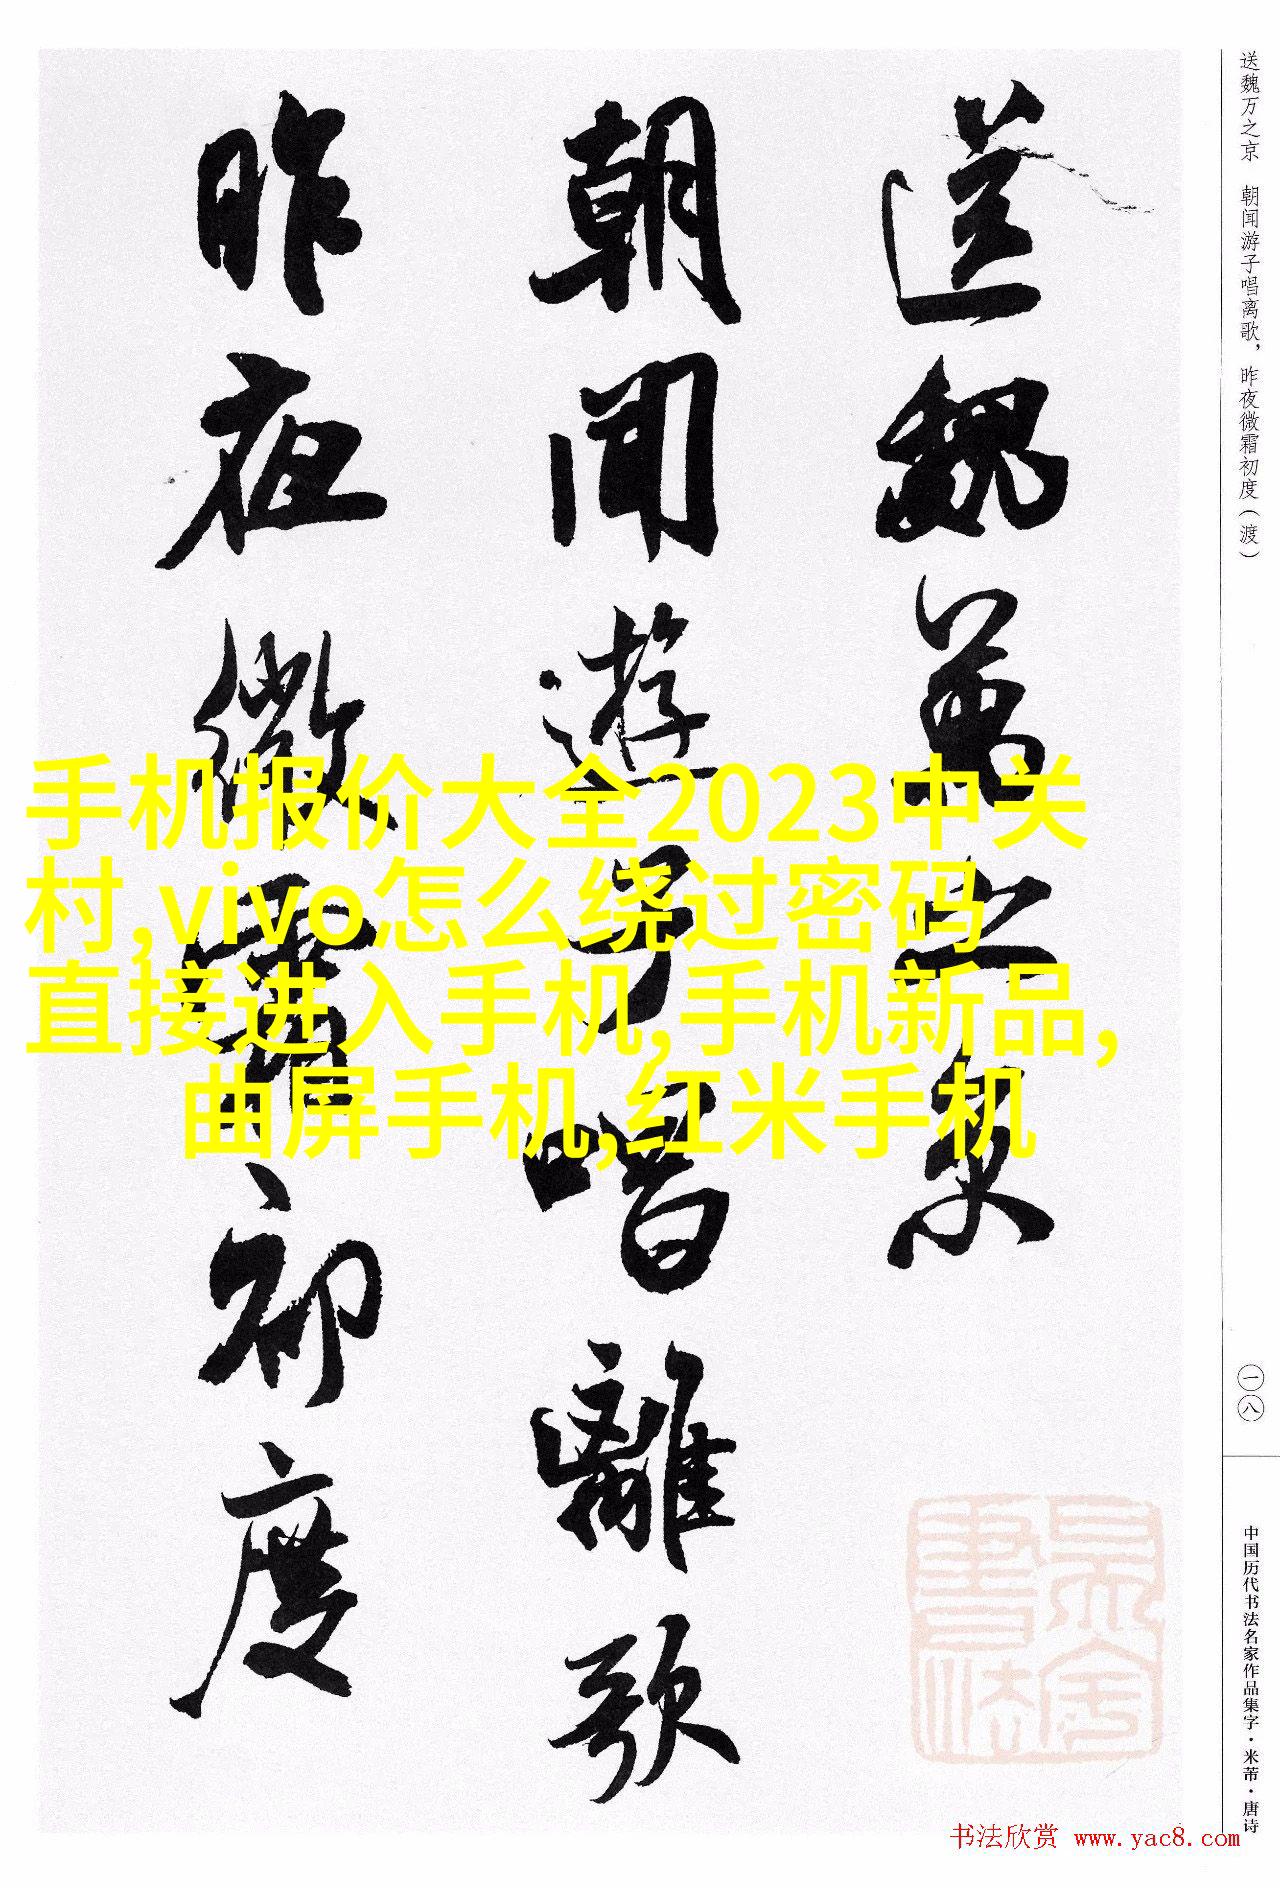 送魏万之京
朝闻游子唱離歌
昨夜微霜初度
手机报价大全2023中关
村,vivo怎么绕过密码
直接进入手机,手机新品,
曲屏手机,红米手机
送魏万之京 朝闻游子唱离歌，昨夜微霜初度（渡）
一八
中国历代书法名家作品集字·米芾·唐诗
书法欣赏 www.yac8.com